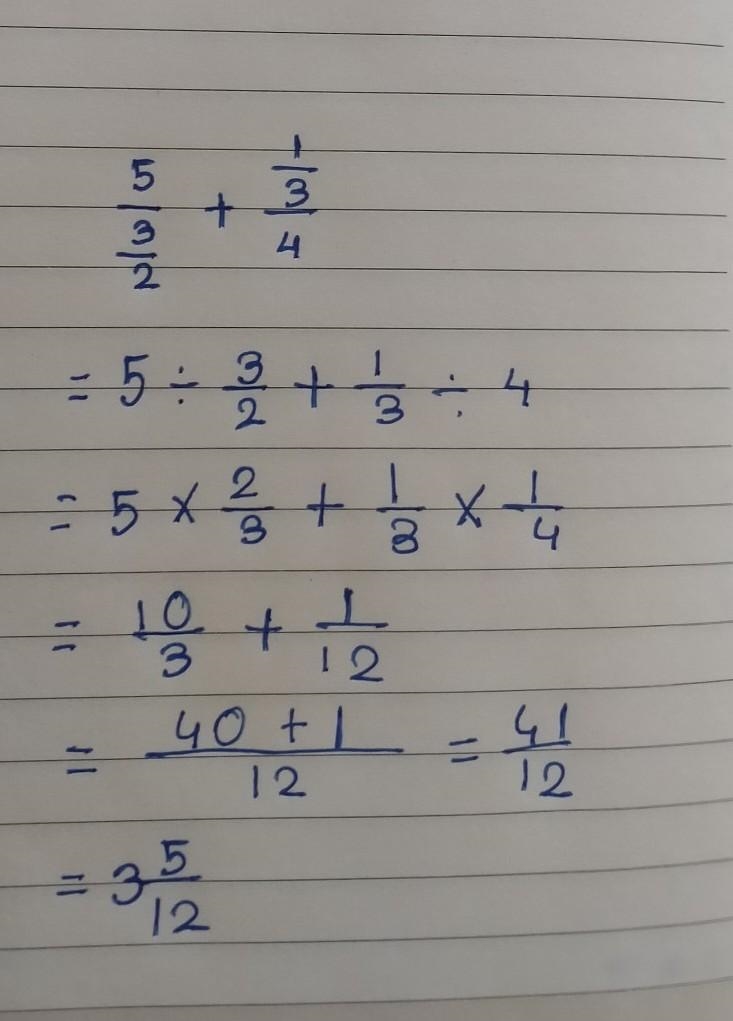 5/(3/2) + (1/3)/4
= 5 ÷ 3/2 + 1/3 ÷ 4
= 5 × 2/3 + 1/3 × 1/4
= 10/3 + 1/12
= (40 + 1)/12 = 41/12
= 3 5/12